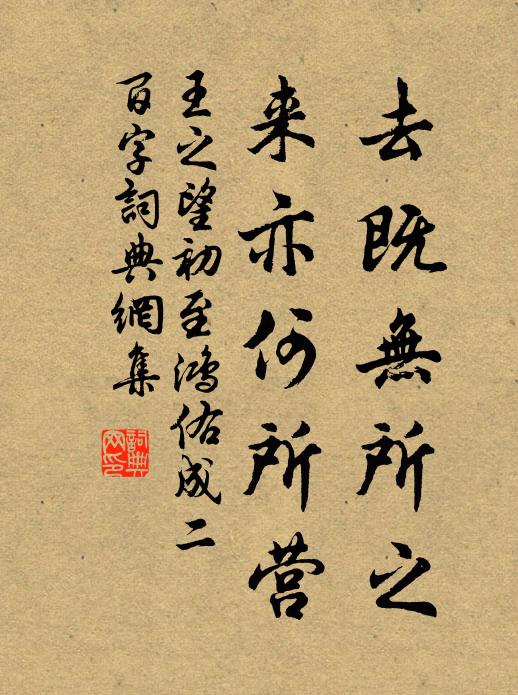 去既無所之
来亦何所营
王之望初至鸿佑成二
百字詞典網集
詞典
网印